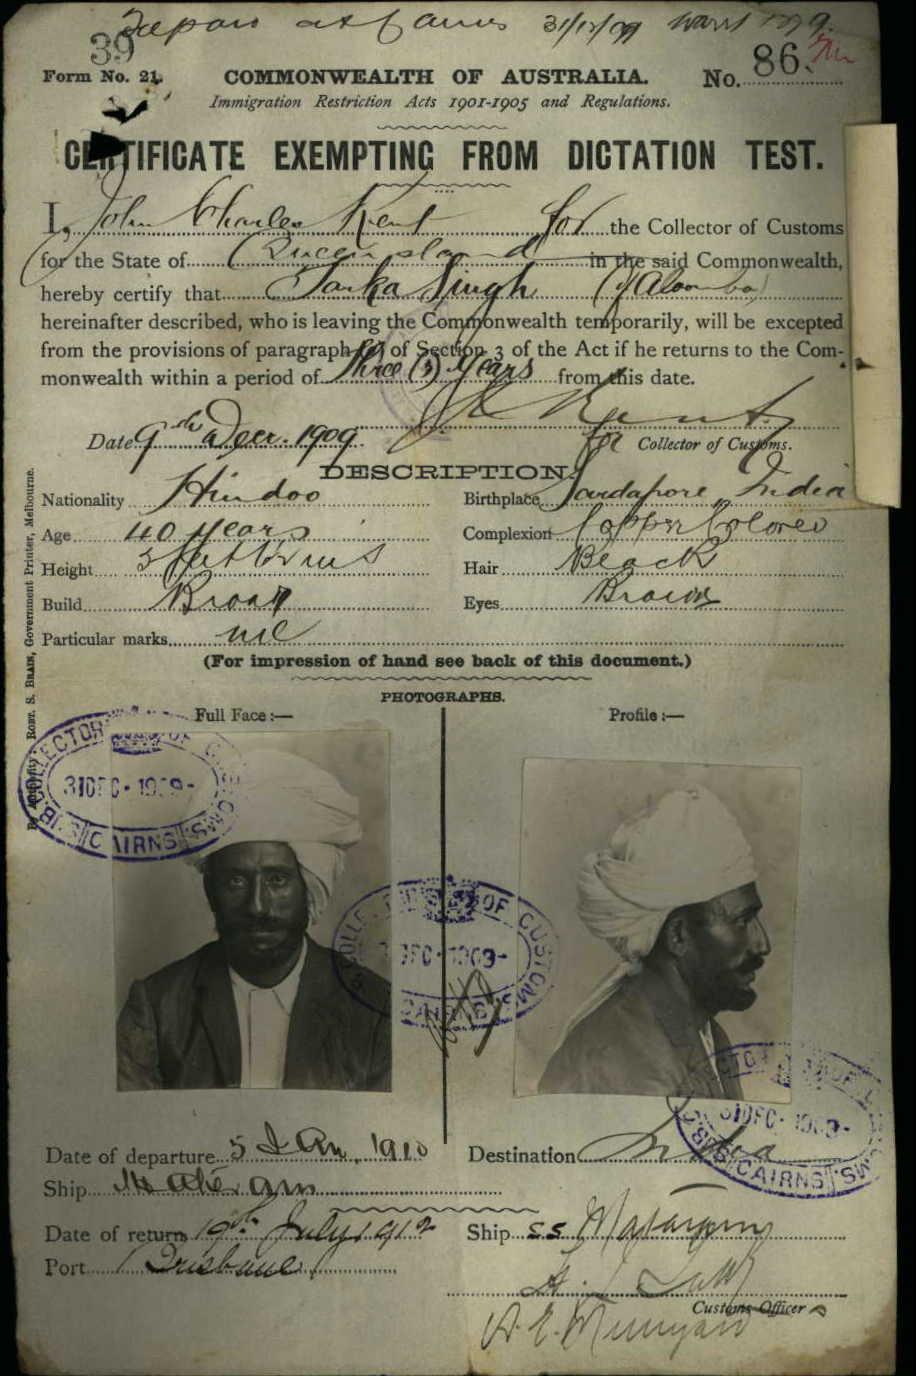 39
31/12/09
Form No. 21. COMMONWEALTH OF AUSTRALIA. No. 86.
Immigration Restriction Acts 1901-1905 and Regulations.
CERTIFICATE EXEMPTING FROM DICTATION TEST.
I, John Charles Kent for the Collector of Customs
for the State of Queensland in the said Commonwealth,
hereby certify that Singh
hereinafter described, who is leaving the Commonwealth temporarily, will be excepted
from the provisions of paragraph of Section 3 of the Act if he returns to the Com-
monwealth within a period of three (3) Years from this date.
J C Kent
Date 9th Decr. 1909. for Collector of Customs.
DESCRIPTION.
Nationality Hindoo Birthplace India
Age 40 years Complexion Copper Colored
Height Hair Black
Build Broad Eyes Brown
Particular marks nil
(For impression of hand see back of this document.)
PHOTOGRAPHS.
Full Face:— Profile:—
COLLECTOR OF CUSTOMS
31 DEC · 1909
CAIRNS
COLLECTOR OF CUSTOMS
DEC · 1909
CAIRNS
COLLECTOR OF CUSTOMS
31 DEC · 1909
CAIRNS
Date of departure 5 Jan. 1910 Destination India
Ship Mataram
Date of return 19th July 1912 Ship SS Mataram
Port Brisbane
Customs Officer
ROBT. S. BRAIN, Government Printer, Melbourne.